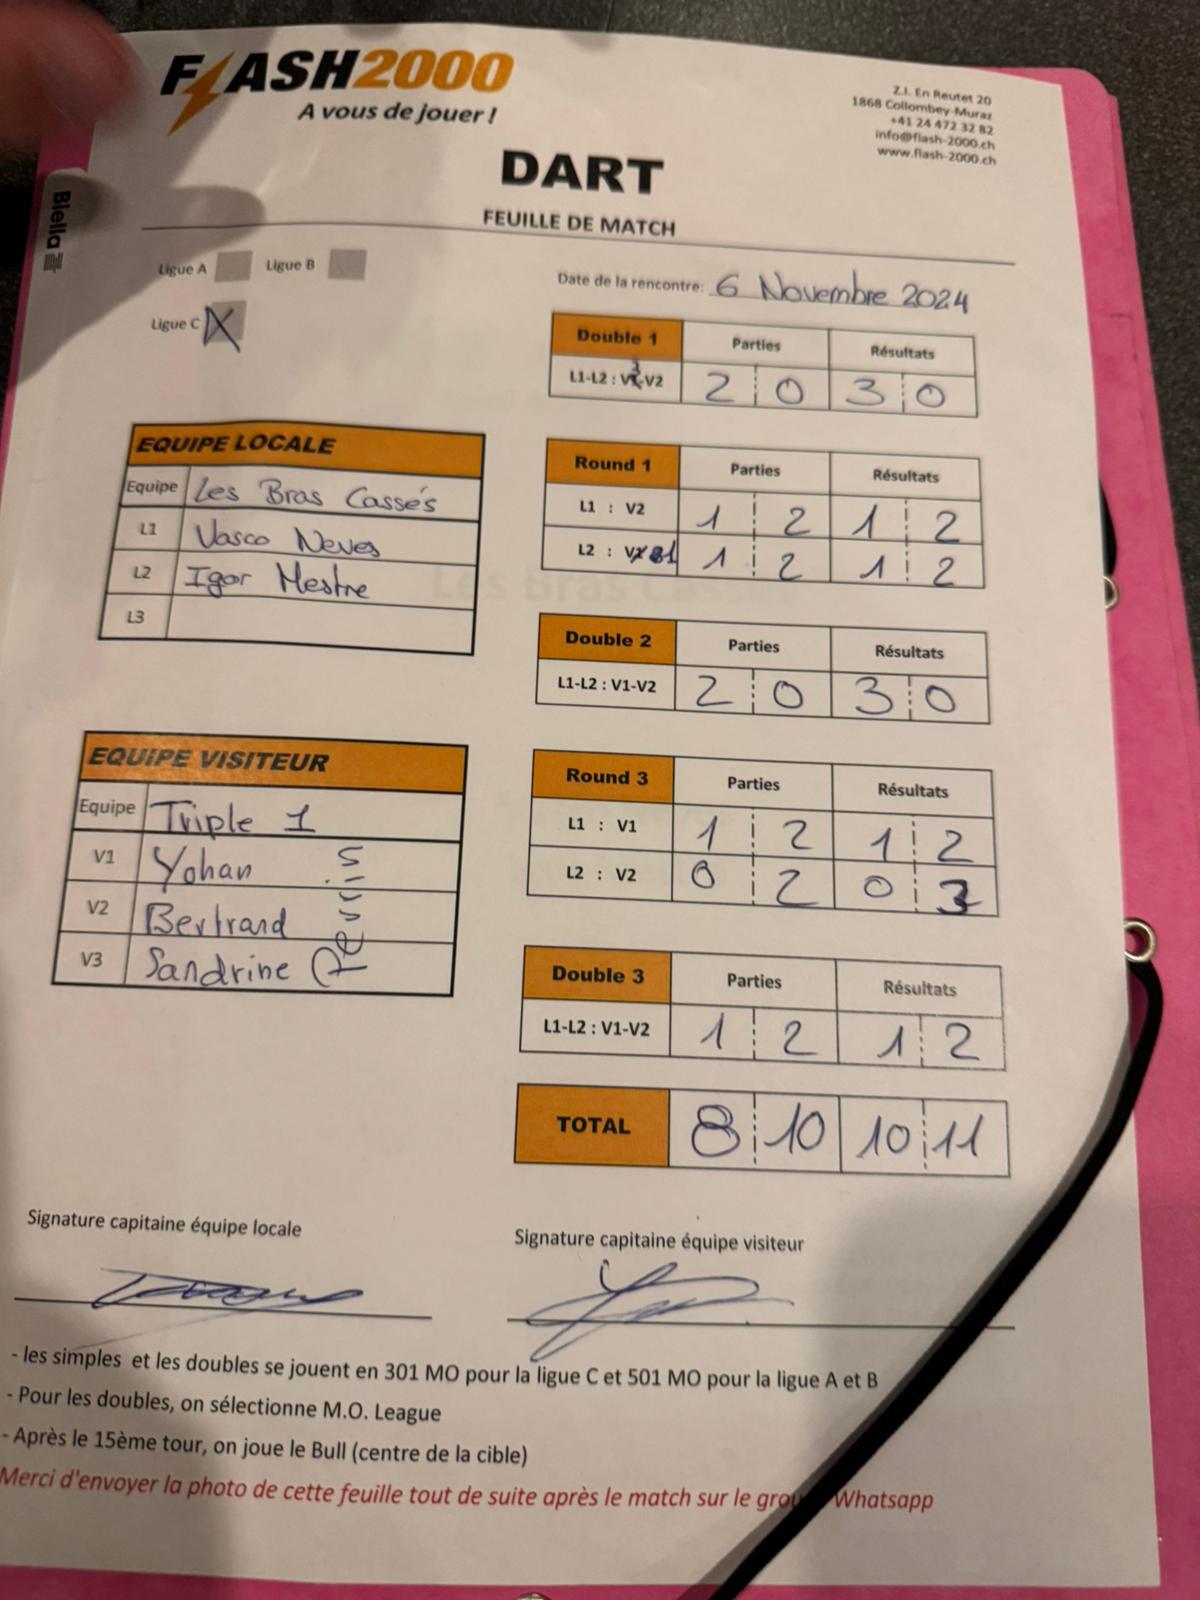 FLASH2000
A vous de jouer !
Z.I. En Reutet 20
1868 Collombey-Muraz
+41 24 472 32 82
info@flash-2000.ch
www.flash-2000.ch
Biella
DART
FEUILLE DE MATCH
Ligue A Ligue B
Ligue C X
Date de la rencontre: 6 Novembre 2024
Double 1 Parties Résultats
L1-L2 : V3-V2 2 0 3 0
EQUIPE LOCALE
Equipe Les Bras Cassés
L1 Vasco Neves
L2 Igor Mestre
L3
Round 1 Parties Résultats
L1 : V2 1 2 1 2
L2 : 1 2 1 2
Double 2 Parties Résultats
L1-L2 : V1-V2 2 0 3 0
EQUIPE VISITEUR
Equipe Triple 1
V1 Yohan
V2 Bertrand
V3 Sandrine
Round 3 Parties Résultats
L1 : V1 1 2 1 2
L2 : V2 0 2 0 3
Double 3 Parties Résultats
L1-L2 : V1-V2 1 2 1 2
TOTAL 8 10 10 11
Signature capitaine équipe locale
Signature capitaine équipe visiteur
- les simples et les doubles se jouent en 301 MO pour la ligue C et 501 MO pour la ligue A et B
- Pour les doubles, on sélectionne M.O. League
- Après le 15ème tour, on joue le Bull (centre de la cible)
Merci d'envoyer la photo de cette feuille tout de suite après le match sur le Whatsapp